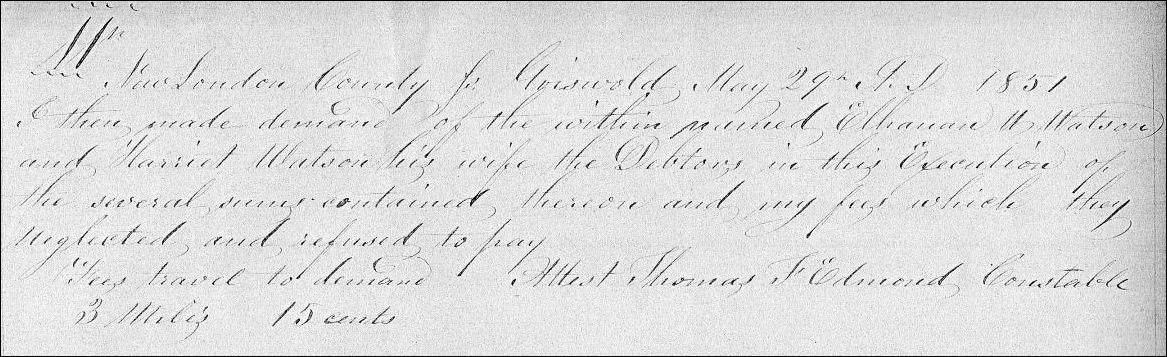 New London County Ss Griswold May 29th A.D 1851
I then made demand of the within named Elhanan W Watson
and Harriet Watson his wife the Debtors in this Execution of
the several sums contained thereon and my fees which they
neglected and refused to pay
Fees travel to demand Attest Thomas F Edmond Constable
3 Miles 15 cents